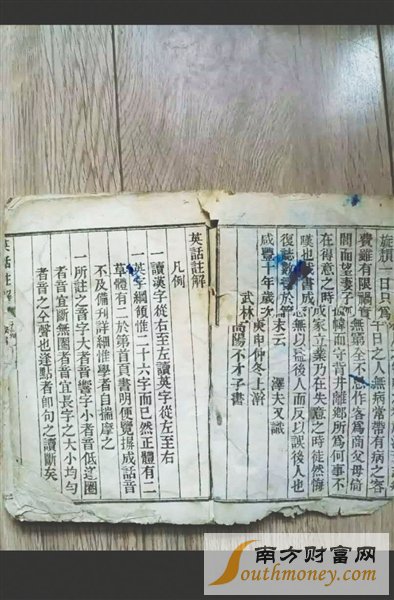 一日只為千日之人無病常帶有病之客
費雖有限禍實全不作客為商父母倚
閭而望妻子幃而守背井離鄉所為何事不
在得意之時成家立業乃在失意之時徒然悔
嘆也書成無以益後人而反以誤後人也
復誌數於末云 澤夫又識
咸豐十年歲次庚申仲冬上澣
武林高陽不才子書
英話註解
凡例
一讀漢字從右至左讀英字從左至右
一英字綱領惟二十六字而已然正體有二
草體有二於第首頁書明便覽揖成話音
不及備刊詳細惟學者自揣摩之
一所註之音字大者音響字小者音低逗圈
者音宜斷無圈者音宜長字之大小均勻
者音之全聲也逢點者即句之讀斷矣
英話註解
南方财富网
Southmoney.com